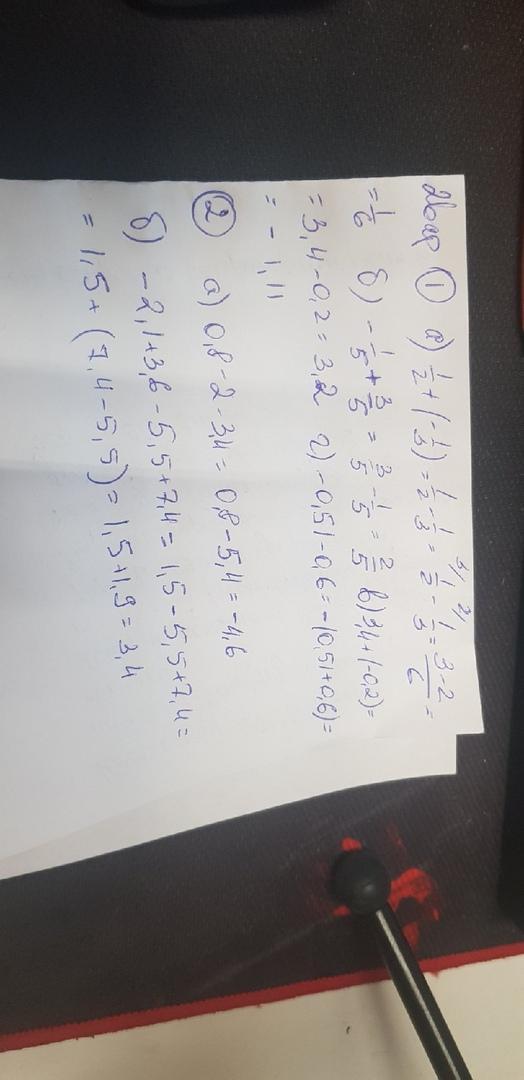 2вар ① а) 1/2 + (-1/3) = 1/2 - 1/3 = 1/2 3/ - 1/3 2/ = 3-2/6 =
= 1/6 б) -1/5 + 3/5 = 3/5 - 1/5 = 2/5 в) 3,4+(-0,2)=
= 3,4-0,2 = 3,2 г) -0,51-0,6 = -(0,51+0,6) =
= - 1,11
② а) 0,8-2-3,4 = 0,8-5,4 = -4,6
б) -2,1+3,6-5,5+7,4 = 1,5-5,5+7,4 =
= 1,5+(7,4-5,5) = 1,5+1,9 = 3,4